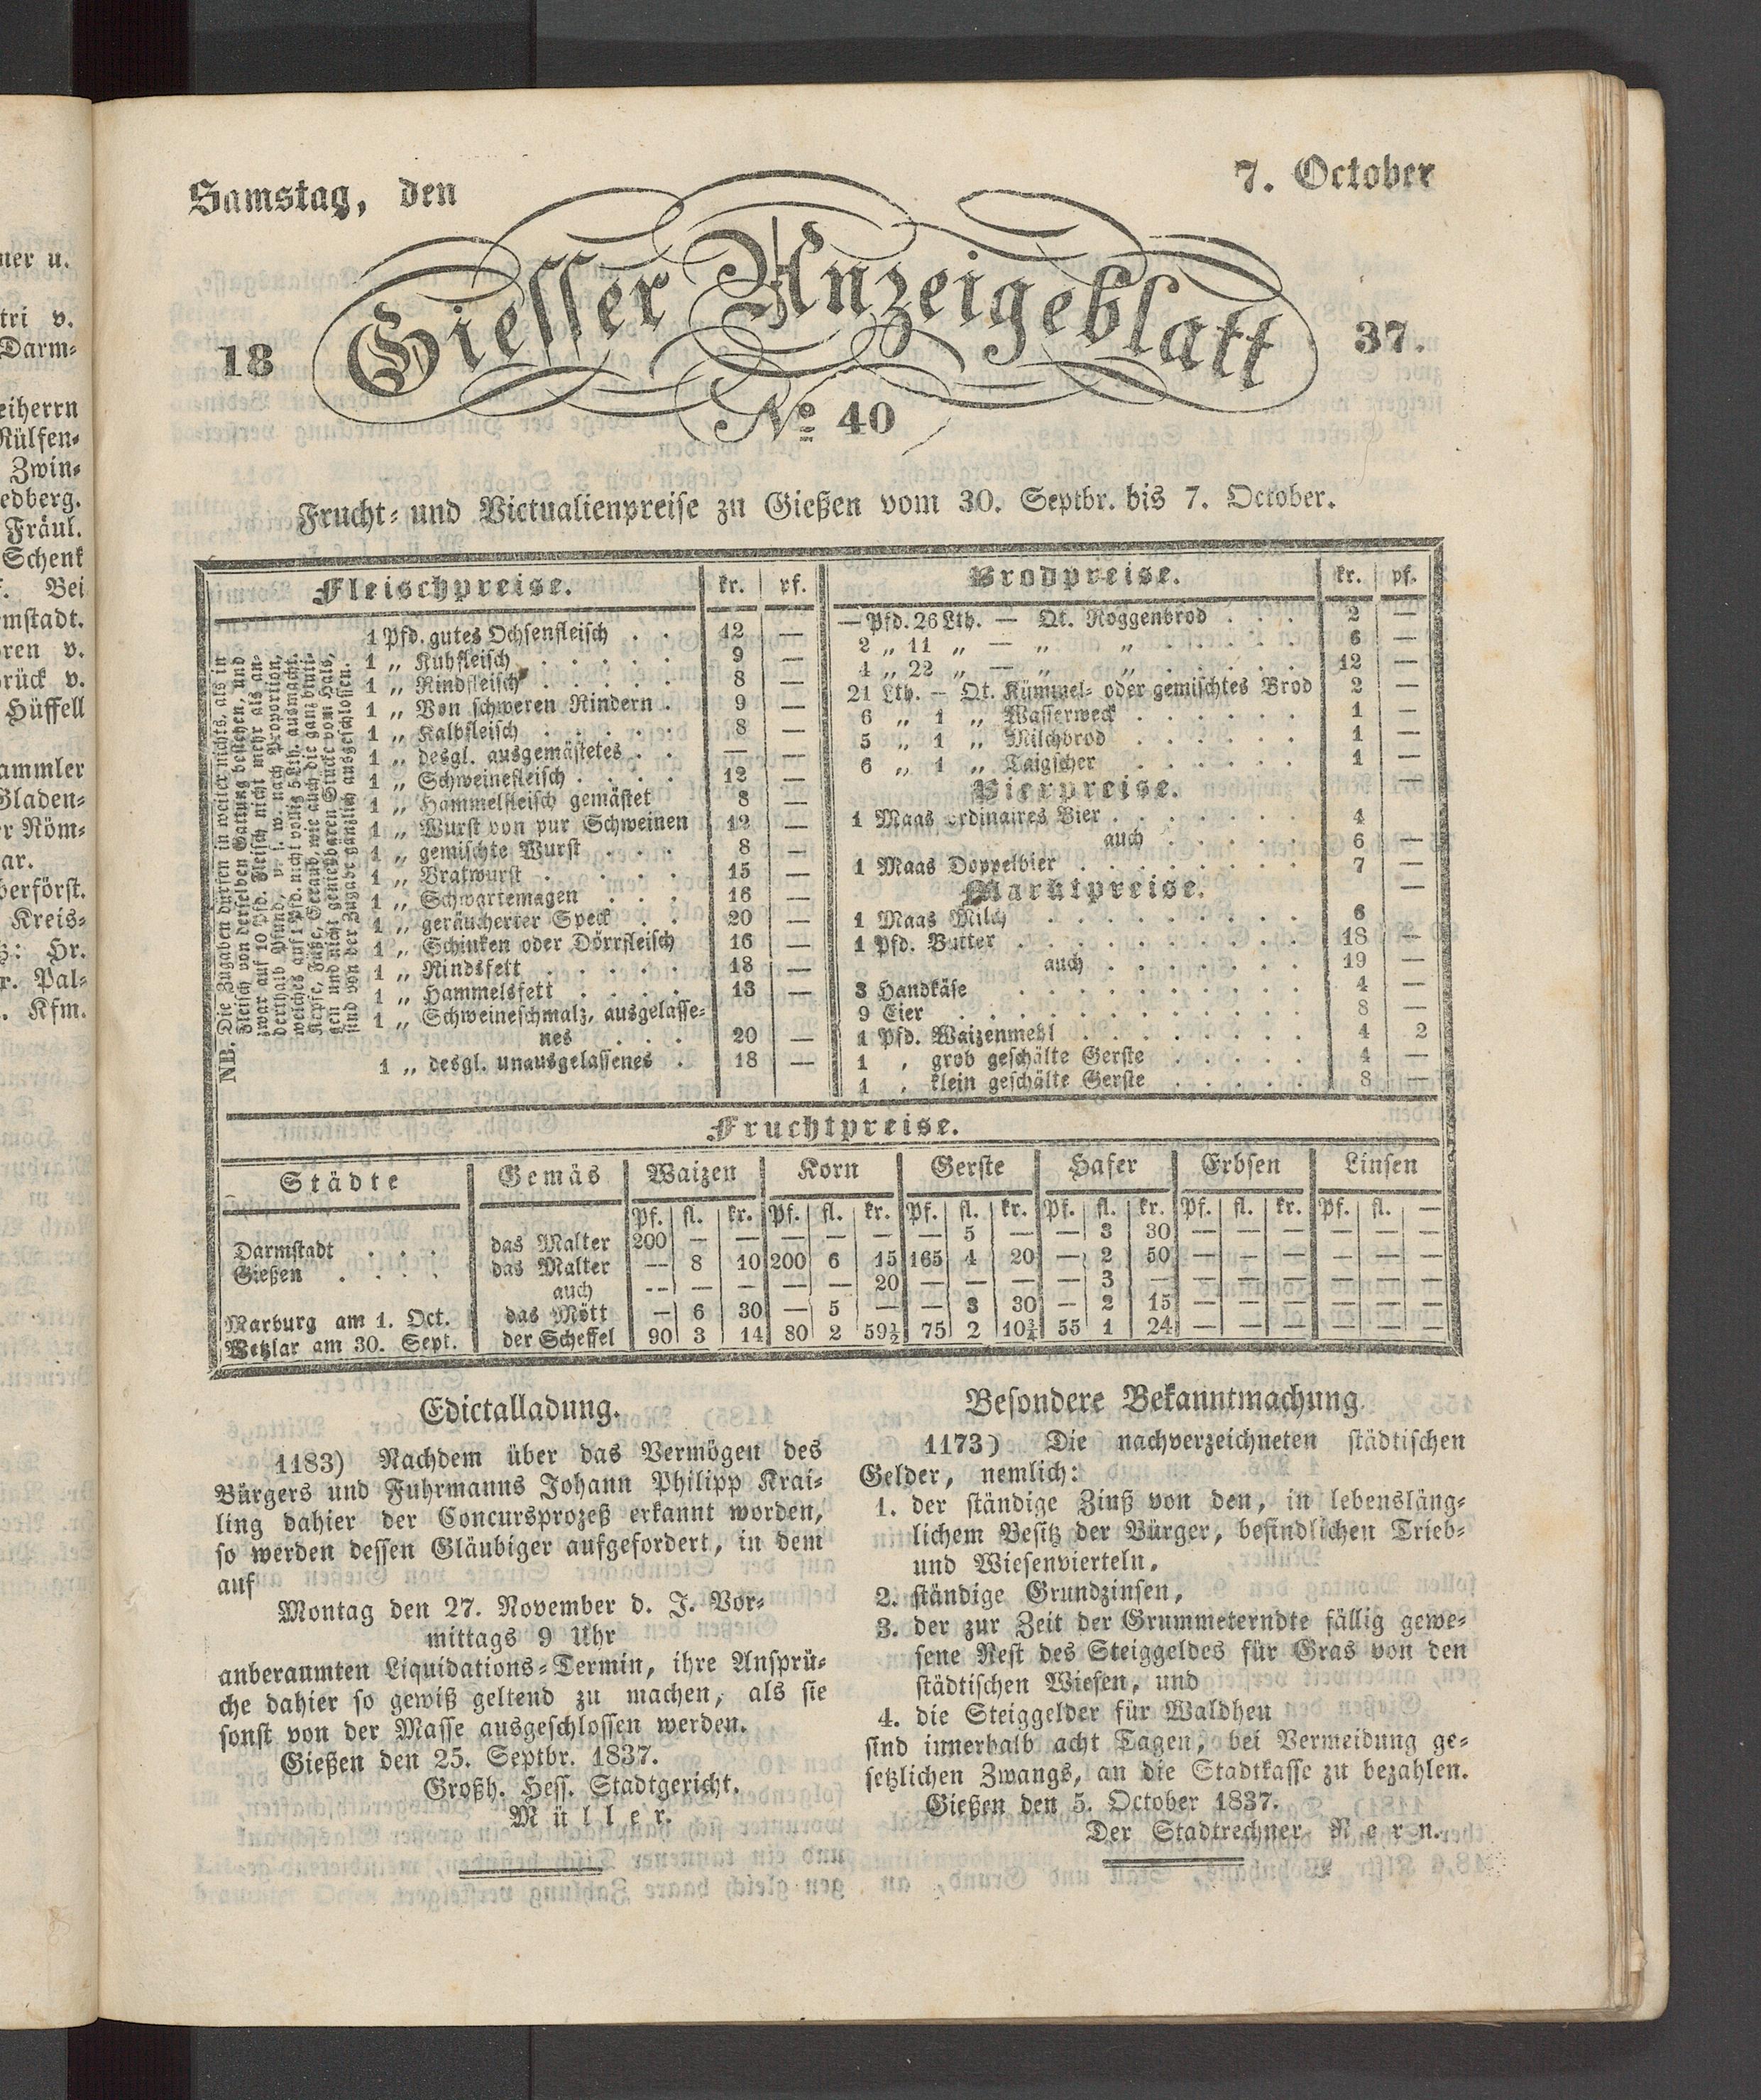 Samstag, den 7. October
18 Giesser Anzeigeblatt 37.
No 40
Frucht- und Victualienpreise zu Gießen vom 30. Septbr. bis 7. October.
Fleischpreise. kr. pf.
1 Pfd. gutes Ochsenfleisch . . 12 —
1 „ Kuhfleisch . . . . . 9 —
1 „ Rindfleisch . . . . . 8 —
1 „ Von schweren Rindern . 9 —
1 „ Kalbfleisch . . . . . 8 —
1 „ desgl. ausgemästetes . . — —
1 „ Schweinefleisch . . . . 12 —
1 „ Hammelfleisch gemästet 8 —
1 „ Wurst von pur Schweinen 12 —
1 „ gemischte Wurst . . . 8 —
1 „ Bratwurst . . . . . 15 —
1 „ Schwartemagen . . . 16 —
1 „ geräucherter Speck . . 20 —
1 „ Schinken oder Dörrfleisch 16 —
1 „ Rindsfett . . . . . 18 —
1 „ Hammelsfett . . . . 13 —
1 „ Schweineschmalz, ausgelasse-
nes . . . 20 —
1 „ desgl. unausgelassenes . 18 —
NB. Die Zugaben dürfen in weiter nichts, als in
Fleisch von derselben Gattung bestehen, und
zwar auf 10 Pfd. Fleisch nicht mehr als an-
derthalb Pfund, u. s. w. nach Proportion,
welches auf 1 Pfd. nicht völlig 5 Lth. ausmacht.
Köpfe, Füße, Geräub, wie auch die ganz bluti-
gen und nicht genießbaren Stücke vom Hals,
sind von der Zugabe gänzlich ausgeschlossen.
Brodpreise. kr. pf.
— Pfd. 26 Lth. — Qt. Roggenbrod . . . 2 —
2 „ 11 „ — „ „ . . . . . 6 —
4 „ 22 „ — „ „ . . . . . 12 —
21 Lth. — Qt. Kümmel- oder gemischtes Brod 2 —
6 „ 1 „ Wasserweck . . . . . . 1 —
5 „ 1 „ Milchbrod . . . . . . 1 —
6 „ 1 „ Taigscher . . . . . . 1 —
Bierpreise.
1 Maas ordinaires Bier . . . . . . . 4
auch . . . . . 6 —
1 Maas Doppelbier . . . . . . . . 7 —
Marktpreise.
1 Maas Milch . . . . . . . . . 6
1 Pfd. Butter . . . . . . . . . 18 —
auch . . . . . . . 19 —
3 Handkäse . . . . . . . . . 4 —
9 Eier . . . . . . . . . . . 8 —
1 Pfd. Waizenmehl . . . . . . . . 4 2
1 „ grob geschälte Gerste . . . . . 4 —
1 „ klein geschälte Gerste . . . . . 8 —
Fruchtpreise.
Städte Gemäs Waizen Korn Gerste Hafer Erbsen Linsen
Pf. fl. kr. Pf. fl. kr. Pf. fl. kr. Pf. fl. kr. Pf. fl. kr. Pf. fl. —
Darmstadt . . . das Malter 200 — — — — — — 5 — — 3 30 — — — — — —
Gießen . . . . das Malter — 8 10 200 6 15 165 4 20 — 2 50 — — — — — —
auch — — — — — 20 — — — — 3 — — — — — — —
Marburg am 1. Oct. das Mött — 6 30 — 5 — — 3 30 — 2 15 — — — — — —
Wetzlar am 30. Sept. der Scheffel 90 3 14 80 2 59½ 75 2 10¾ 55 1 24 — — — — — —
Edictalladung.
1183) Nachdem über das Vermögen des
Bürgers und Fuhrmanns Johann Philipp Krai-
ling dahier der Concursprozeß erkannt worden,
so werden dessen Gläubiger aufgefordert, in dem
auf
Montag den 27. November d. J. Vor-
mittags 9 Uhr
anberaumten Liquidations-Termin, ihre Ansprü-
che dahier so gewiß geltend zu machen, als sie
sonst von der Masse ausgeschlossen werden.
Gießen den 25. Septbr. 1837.
Großh. Hess. Stadtgericht.
Müller.
Besondere Bekanntmachung.
1173) Die nachverzeichneten städtischen
Gelder, nemlich:
1. der ständige Zinß von den, in lebensläng-
lichem Besitz der Bürger, befindlichen Trieb-
und Wiesenvierteln,
2. ständige Grundzinsen,
3. der zur Zeit der Grummeterndte fällig gewe-
sene Rest des Steiggeldes für Gras von den
städtischen Wiesen, und
4. die Steiggelder für Waldheu
sind innerhalb acht Tagen, bei Vermeidung ge-
setzlichen Zwangs, an die Stadtkasse zu bezahlen.
Gießen den 5. October 1837.
Der Stadtrechner Kern.